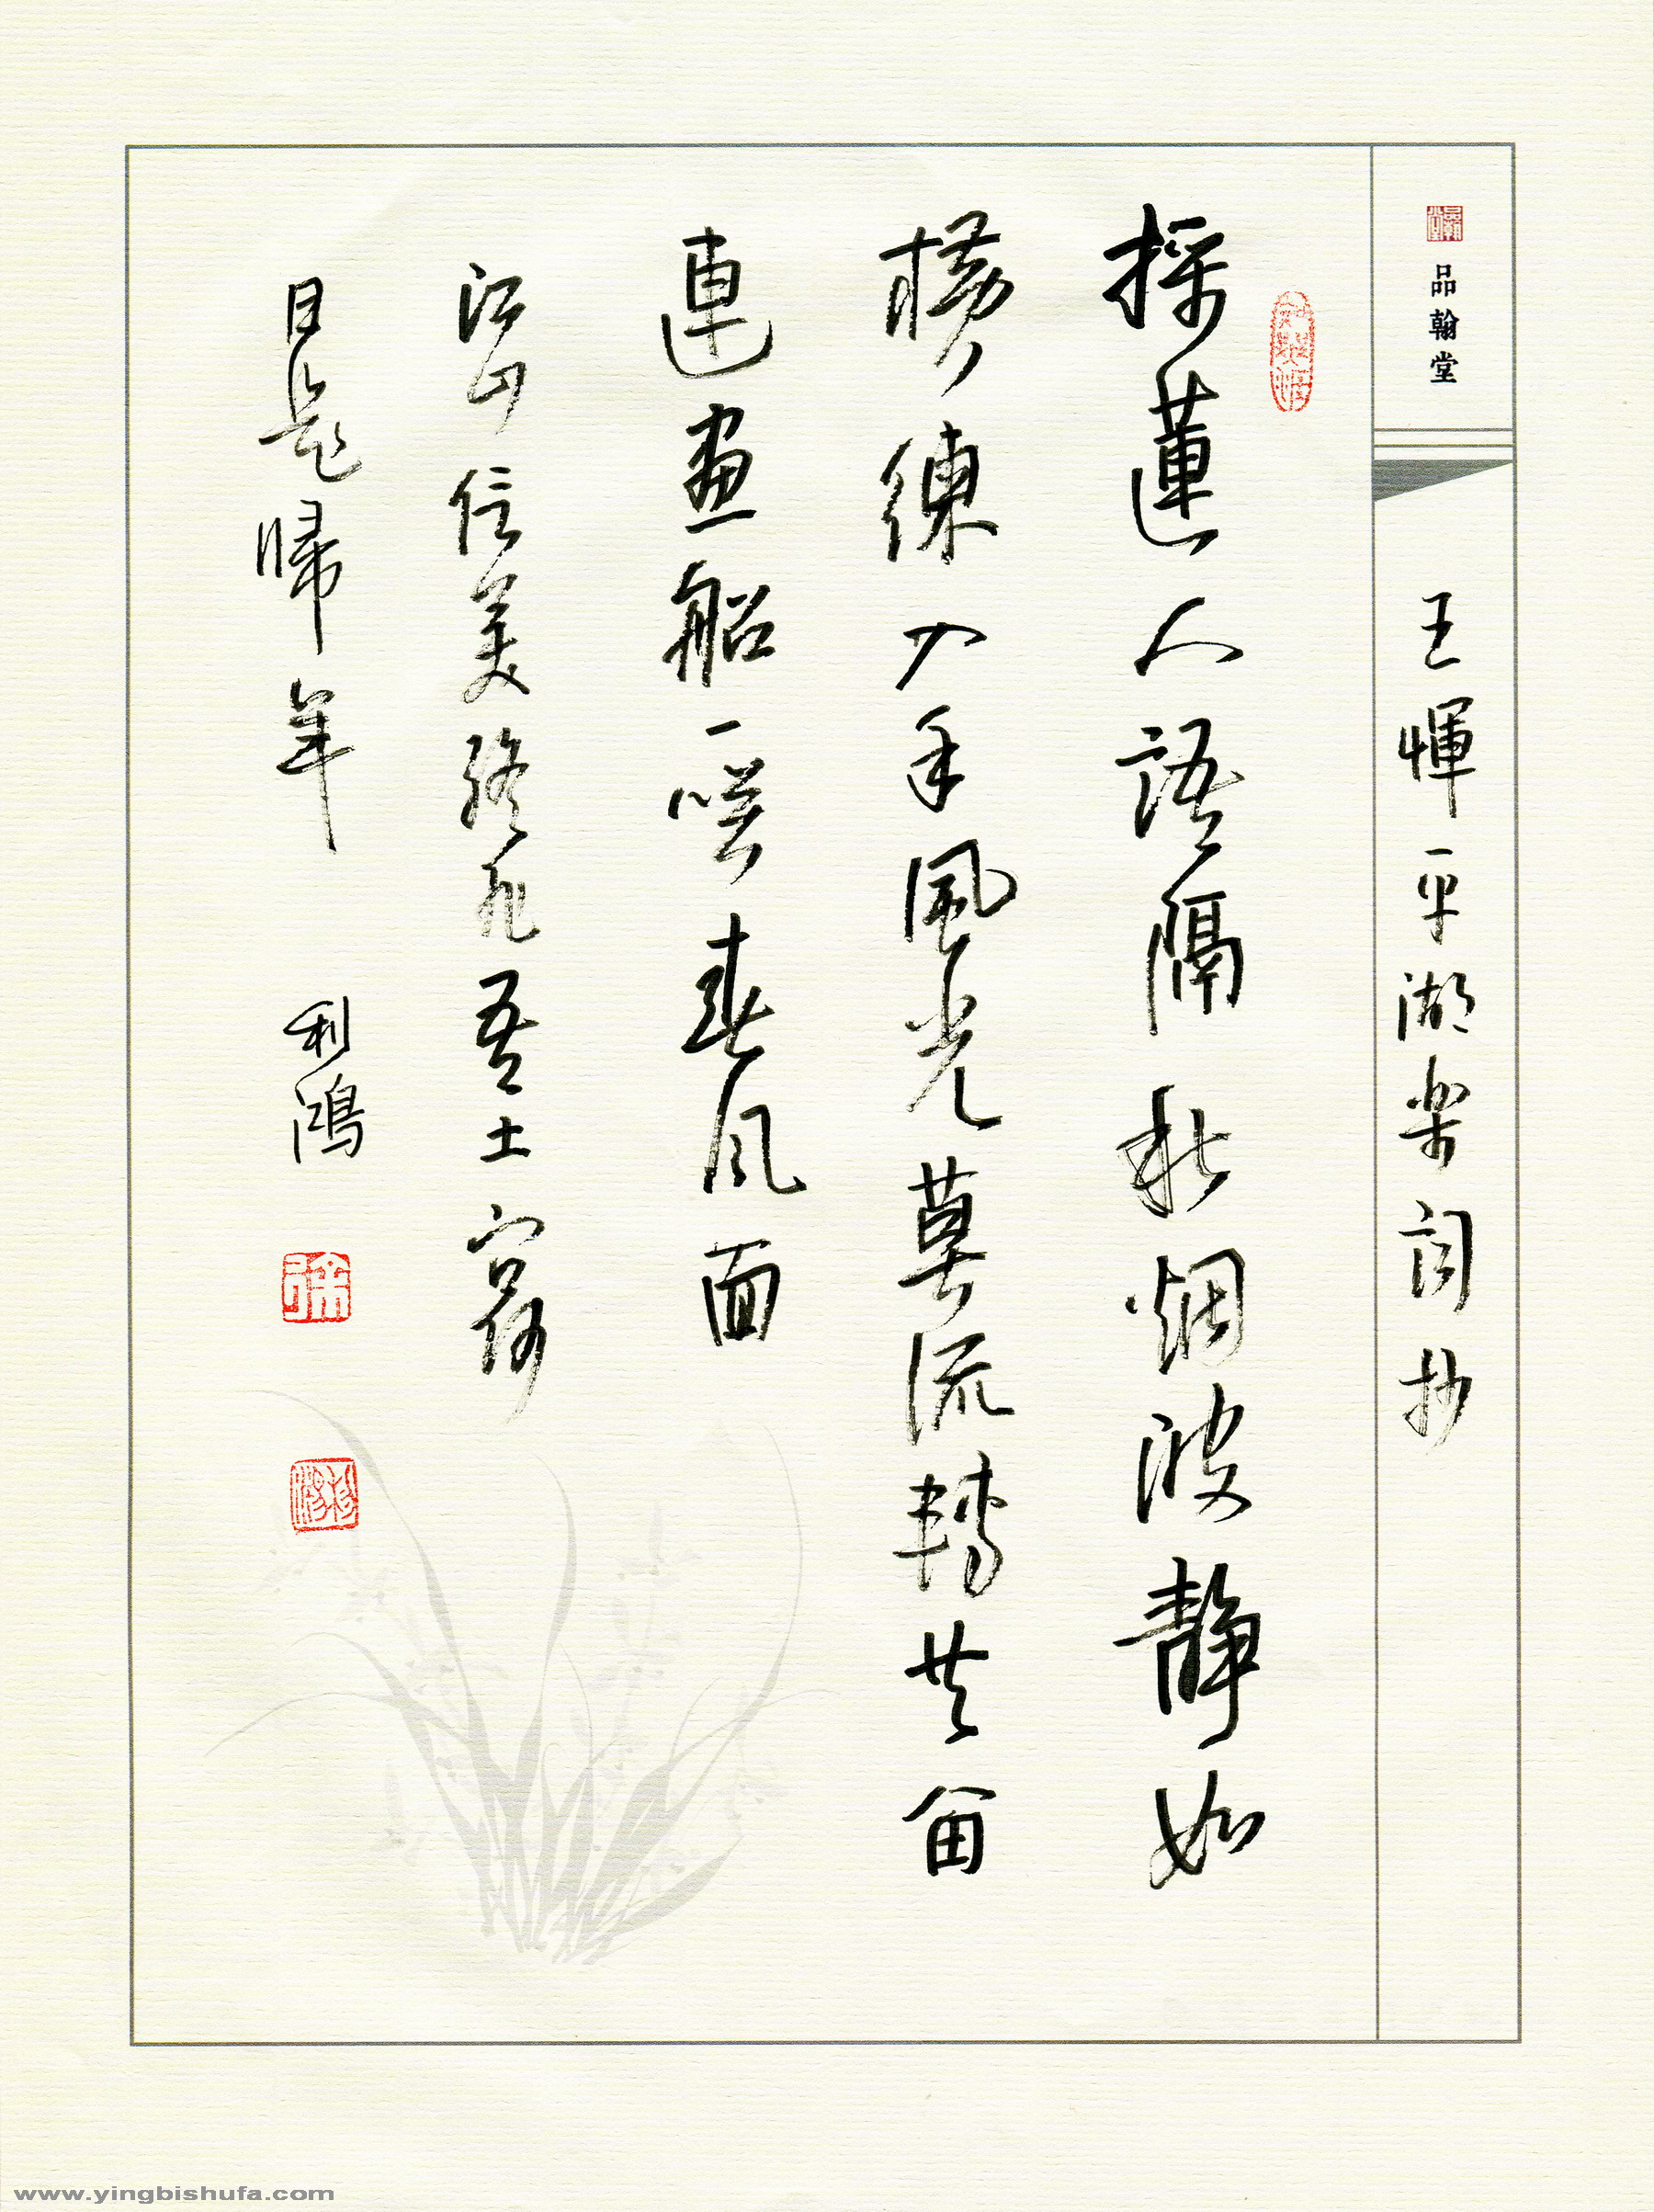 品翰堂
王惲平湖楽詞抄
採蓮人語隔秋烟波靜如
橫練入手風光莫流轉共留
連畫船一咲春风面
江山信美終非吾土窅何
日是帰年 利鴻
www.yingbishufa.com